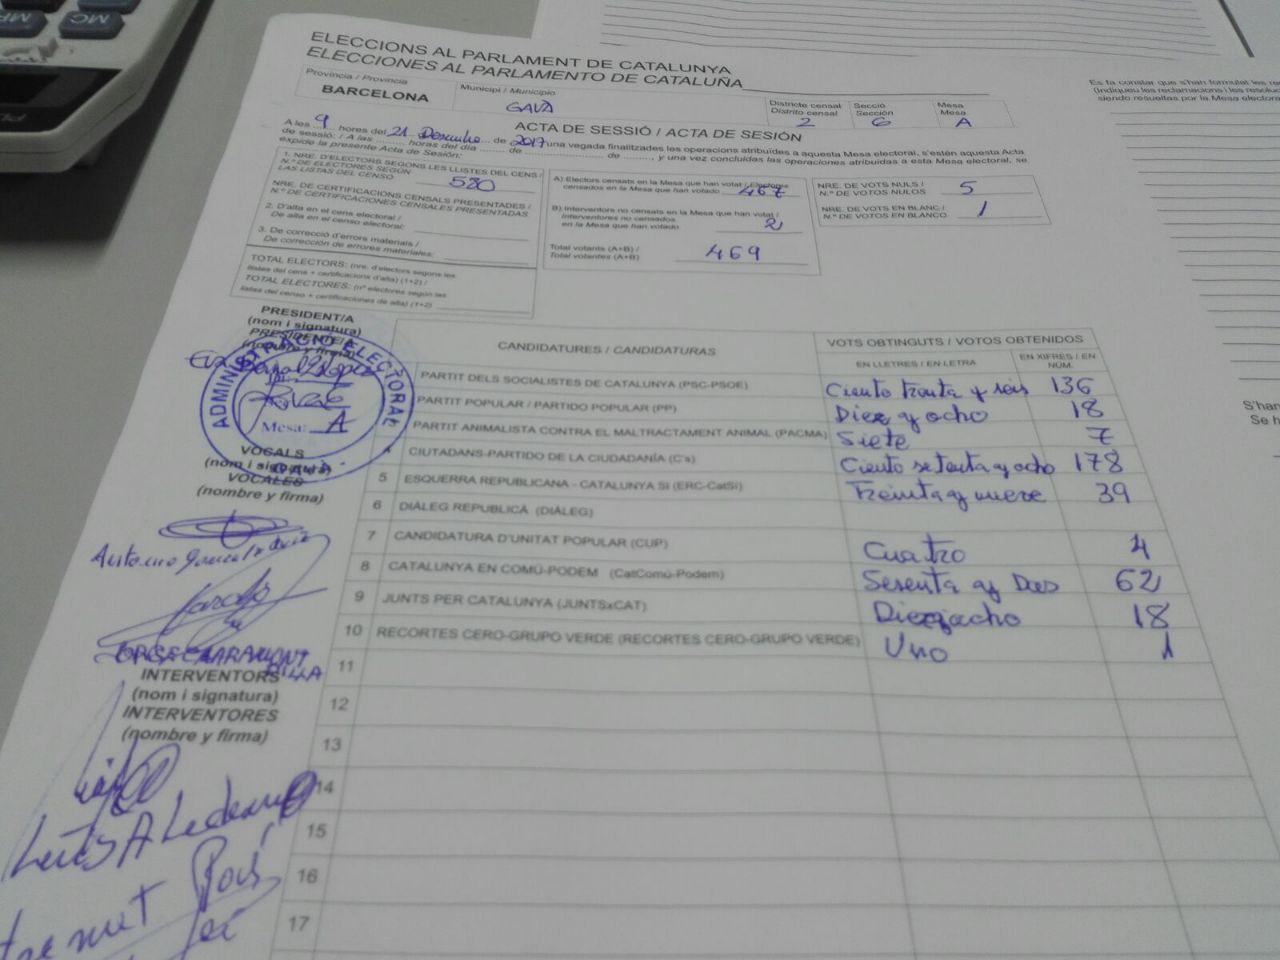 ELECCIONS AL PARLAMENT DE CATALUNYA
ELECCIONES AL PARLAMENTO DE CATALUÑA
Província / Provincia
BARCELONA
Municipi / Municipio
GAVÀ
Districte censal
Distrito censal
2
Secció
Sección
6
Mesa
Mesa
A
ACTA DE SESSIÓ / ACTA DE SESIÓN
A les 9 hores del 21 Desembre de 2017 una vegada finalitzades les operacions atribuïdes a aquesta Mesa electoral, s'estén aquesta Acta
de sessió: / A las ........ horas del día ........ de ........ de ........, y una vez concluidas las operaciones atribuidas a esta Mesa electoral, se
expide la presente Acta de Sesión:
1. NRE. D'ELECTORS SEGONS LES LLISTES DEL CENS /
N.º DE ELECTORES SEGÚN
LAS LISTAS DEL CENSO
580
NRE. DE CERTIFICACIONS CENSALS PRESENTADES /
N.º DE CERTIFICACIONES CENSALES PRESENTADAS
2. D'alta en el cens electoral /
De alta en el censo electoral:
3. De correcció d'errors materials /
De corrección de errores materiales:
TOTAL ELECTORS: (nre. d'electors segons les
llistes del cens + certificacions d'alta) (1+2) /
TOTAL ELECTORES: (nº electores según las
listas del censo + certificaciones de alta) (1+2)
A) Electors censats en la Mesa que han votat / Electores
censados en la Mesa que han votado
467
B) Interventors no censats en la Mesa que han votat /
Interventores no censados
en la Mesa que han votado
2
Total votants (A+B) /
Total votantes (A+B)
469
NRE. DE VOTS NULS /
N.º DE VOTOS NULOS
5
NRE. DE VOTS EN BLANC /
N.º DE VOTOS EN BLANCO
1
PRESIDENT/A
(nom i signatura)
PRESIDENTE/A
(nombre y firma)
ADMINISTRACIÓ ELECTORAL
Mesa: A
GAVÀ
VOCALS
(nom i signatura)
VOCALES
(nombre y firma)
INTERVENTORS
(nom i signatura)
INTERVENTORES
(nombre y firma)
Luis A Ledesma
CANDIDATURES / CANDIDATURAS
VOTS OBTINGUTS / VOTOS OBTENIDOS
EN LLETRES / EN LETRA
EN XIFRES / EN NÚM.
PARTIT DELS SOCIALISTES DE CATALUNYA (PSC-PSOE) Ciento treinta y seis 136
PARTIT POPULAR / PARTIDO POPULAR (PP) Diez y ocho 18
PARTIT ANIMALISTA CONTRA EL MALTRACTAMENT ANIMAL (PACMA) Siete 7
4 CIUTADANS-PARTIDO DE LA CIUDADANÍA (C's) Ciento setenta y ocho 178
5 ESQUERRA REPUBLICANA - CATALUNYA SÍ (ERC-CatSí) Treinta y nueve 39
6 DIÀLEG REPUBLICÀ (DIÀLEG)
7 CANDIDATURA D'UNITAT POPULAR (CUP) Cuatro 4
8 CATALUNYA EN COMÚ-PODEM (CatComú-Podem) Sesenta y Dos 62
9 JUNTS PER CATALUNYA (JUNTSxCAT) Dieciocho 18
10 RECORTES CERO-GRUPO VERDE (RECORTES CERO-GRUPO VERDE) Uno 1
11
12
13
14
15
16
17
Es fa constar que s'han formulat les
(indiqueu les reclamacions i les
siendo resueltas por la Mesa
S'han
Se h
MC